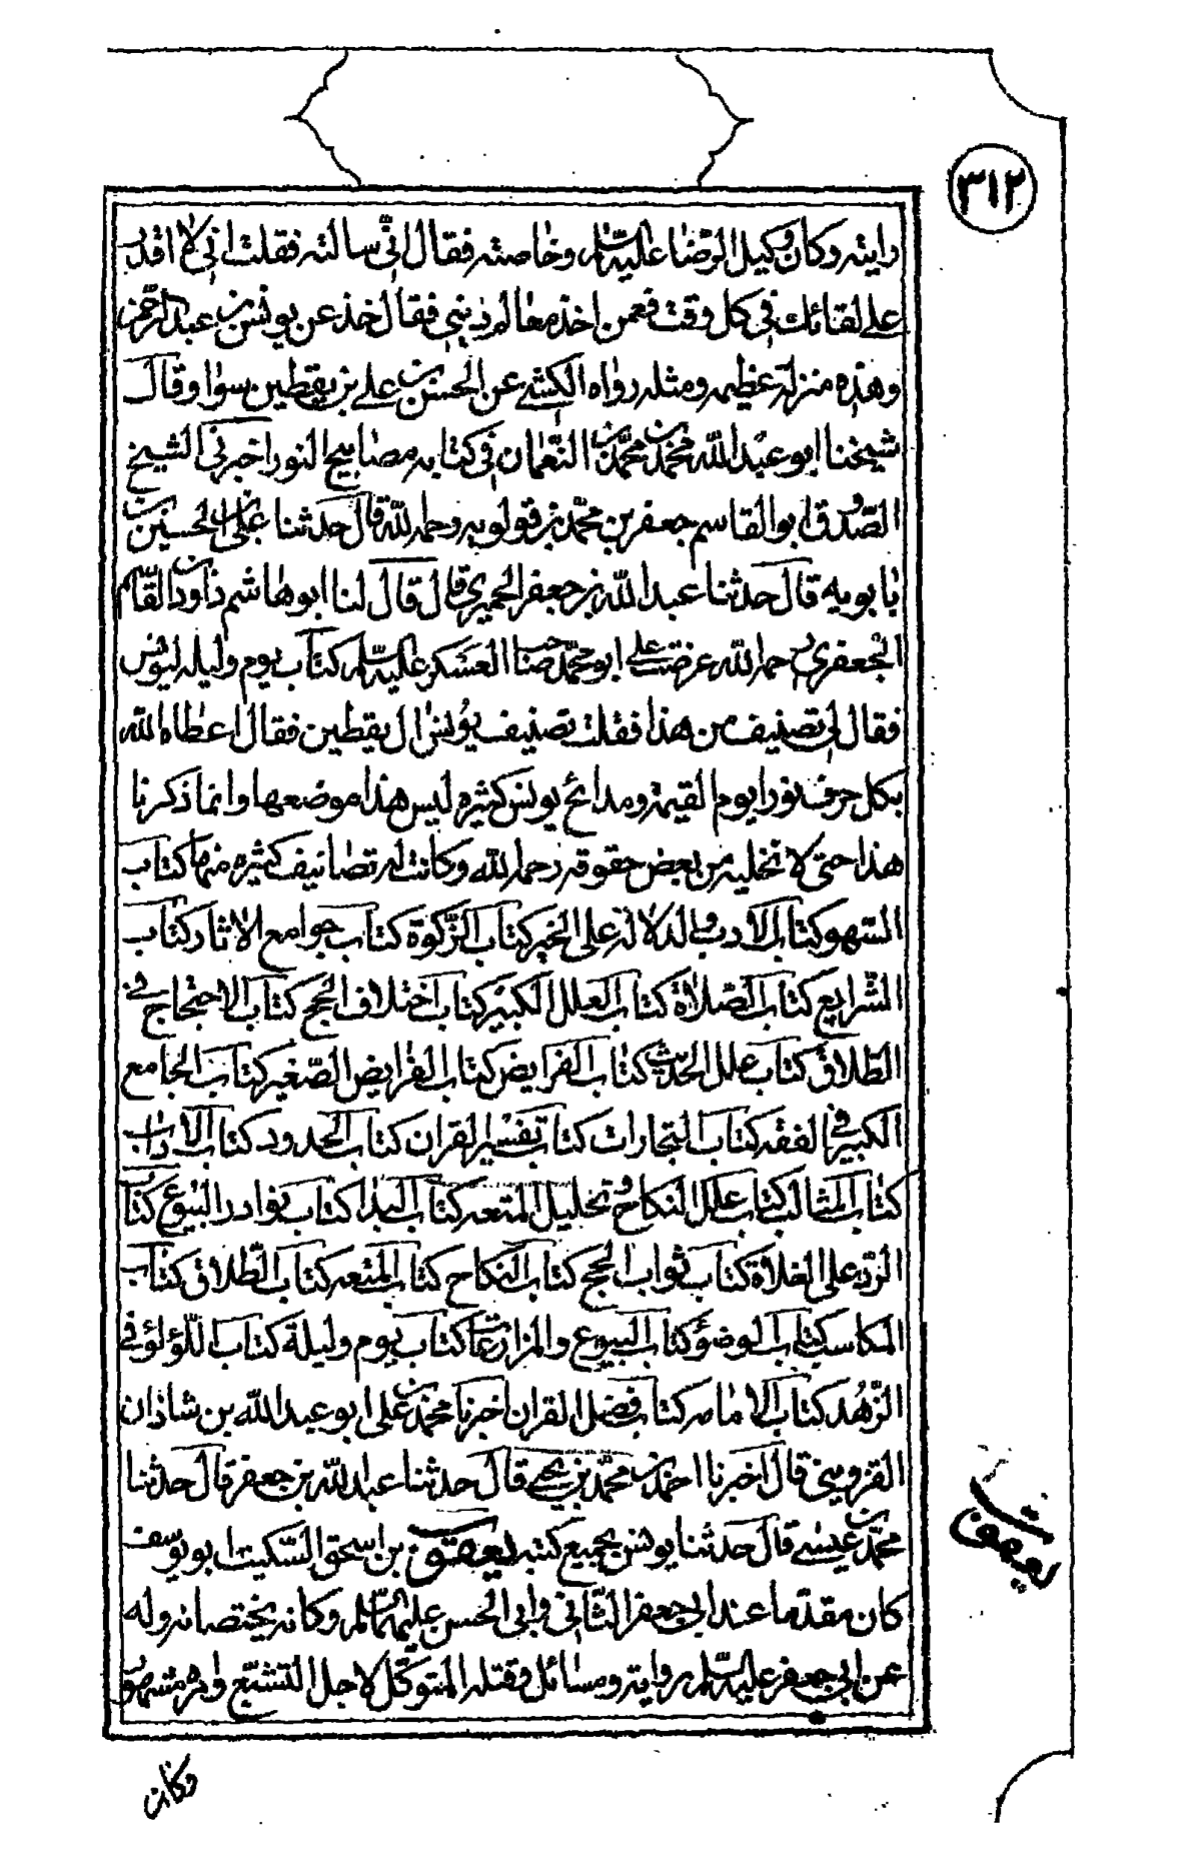 ٣١٢
رايته وكان وكيل الرضا عليه السلم وخاصته فقال انى سالته فقلت انى لا اقدر
على لقائك فى كل وقت فعمن اخذ معالم دينى فقال خذ عن يونس بن عبد الرحمن
وهذه منزلة عظيمه ومثله رواه الكشى عن الحسن بن على بن يقطين سوا وقال
شيخنا ابو عبد الله محمد بن محمد بن النعمان فى كتابه مصابيح النور اخبرنى الشيخ
الصدوق ابو القاسم جعفر بن محمد بن قولويه رحمه الله قال حدثنا على بن الحسين بن
بابويه قال حدثنا عبد الله بن جعفر الحميرى قال قال لنا ابو هاشم داود بن القاسم
الجعفرى رحمه الله عرضت على ابو محمد صاحب العسكر عليه السلم كتاب يوم وليله ليونس
فقال لى تصنيف من هذا فقلت تصنيف يونس ال يقطين فقال اعطاه الله
بكل حرف نورا يوم القيمة ومدائح يونس كثيره ليس هذا موضعها وانما ذكرنا
هذا حتى لا نخليه من بعض حقوقه رحمه الله وكانت له تصانيف كثيره منها كتاب
السهو كتاب الادب والدلالة على الخير كتاب الزكوة كتاب جوامع الاثار كتاب
الشرايع كتاب الصلاة كتاب العلل الكبير كتاب اختلاف الحج كتاب الاحتجاج فى
الطلاق كتاب علل الحديث كتاب الفرايض كتاب الفرايض الصغير كتاب الجامع
الكبير فى الفقه كتاب التجارات كتاب تفسير القران كتاب الحدود كتاب الاداب
كتاب المثالب كتاب علل النكاح وتحليل المتعه كتاب البدا كتاب نوادر البيوع كتاب
الرد على الغلاة كتاب ثواب الحج كتاب النكاح كتاب المتعه كتاب الطلاق كتاب
المكاسب كتاب الوضؤ كتاب البيوع والمزارعات كتاب يوم وليلة كتاب اللؤلؤ فى
الزهد كتاب الامامه كتاب فضل القران اخبرنا محمد بن على ابو عبد الله بن شاذان
القزوينى قال اخبرنا احمد بن محمد بن يحيى قال حدثنا عبد الله بن جعفر قال حدثنا
محمد بن عيسى قال حدثنا يونس بجميع كتبه يعقوب بن اسحق السكيت ابو يوسف
كان مقدما عند ابى جعفر الثانى وابى الحسن عليهما السلم وكانه يختصانه وله
عن ابى جعفر عليه السلم رواية ومسائل وقتله المتوكل لاجل التشيع وامره مشهور
يعقوب
وكان